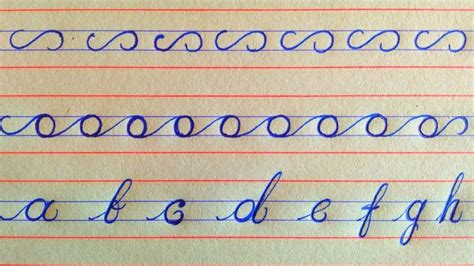 a b c d e f g h